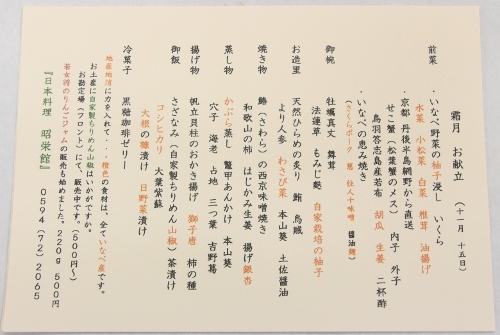 霜月　お献立　（十一月　十五日）
前菜　・いなべ野菜の柚子浸し　いくら
水菜　小松菜　白菜　椎茸　油揚げ
・京都　丹後半島網野から直送
せこ蟹（松葉蟹のメス）　内子　外子
・鳥羽答志島産若布　胡瓜　生姜　二杯酢
・いなべの恵み焼き
（さくらポーク　葱　仕込み十味噌　醤油麹）
御椀　牡蠣真丈　舞茸
法蓮草　もみじ麩　自家栽培の柚子
お造里　天然ひらめの炙り　鮪　烏賊
より人参　わさび菜　本山葵　土佐醤油
焼き物　鰆（さわら）の西京味噌焼き
和歌山の柿　はじかみ生姜　揚げ銀杏
蒸し物　かぶら蒸し　鼈甲あんかけ　本山葵
穴子　海老　占地　三つ葉　吉野葛
揚げ物　帆立貝柱のおかき揚げ　獅子唐　柿の種
御飯　さざなみ（自家製ちりめん山椒）茶漬け
コシヒカリ　大葉紫蘇
大根の糠漬け　日野菜漬け
冷菓子　黒糖珈琲ゼリー
地産地消に力を入れて・・・橙色の食材は、全ていなべ産です。
お土産に自家製ちりめん山椒はいかがですか。
お勘定場（フロント）にて、販売中です。（500円〜）
若女将のりんごジャムの販売も始めました。220g 500円
『日本料理　昭栄館』　0594（72）2065